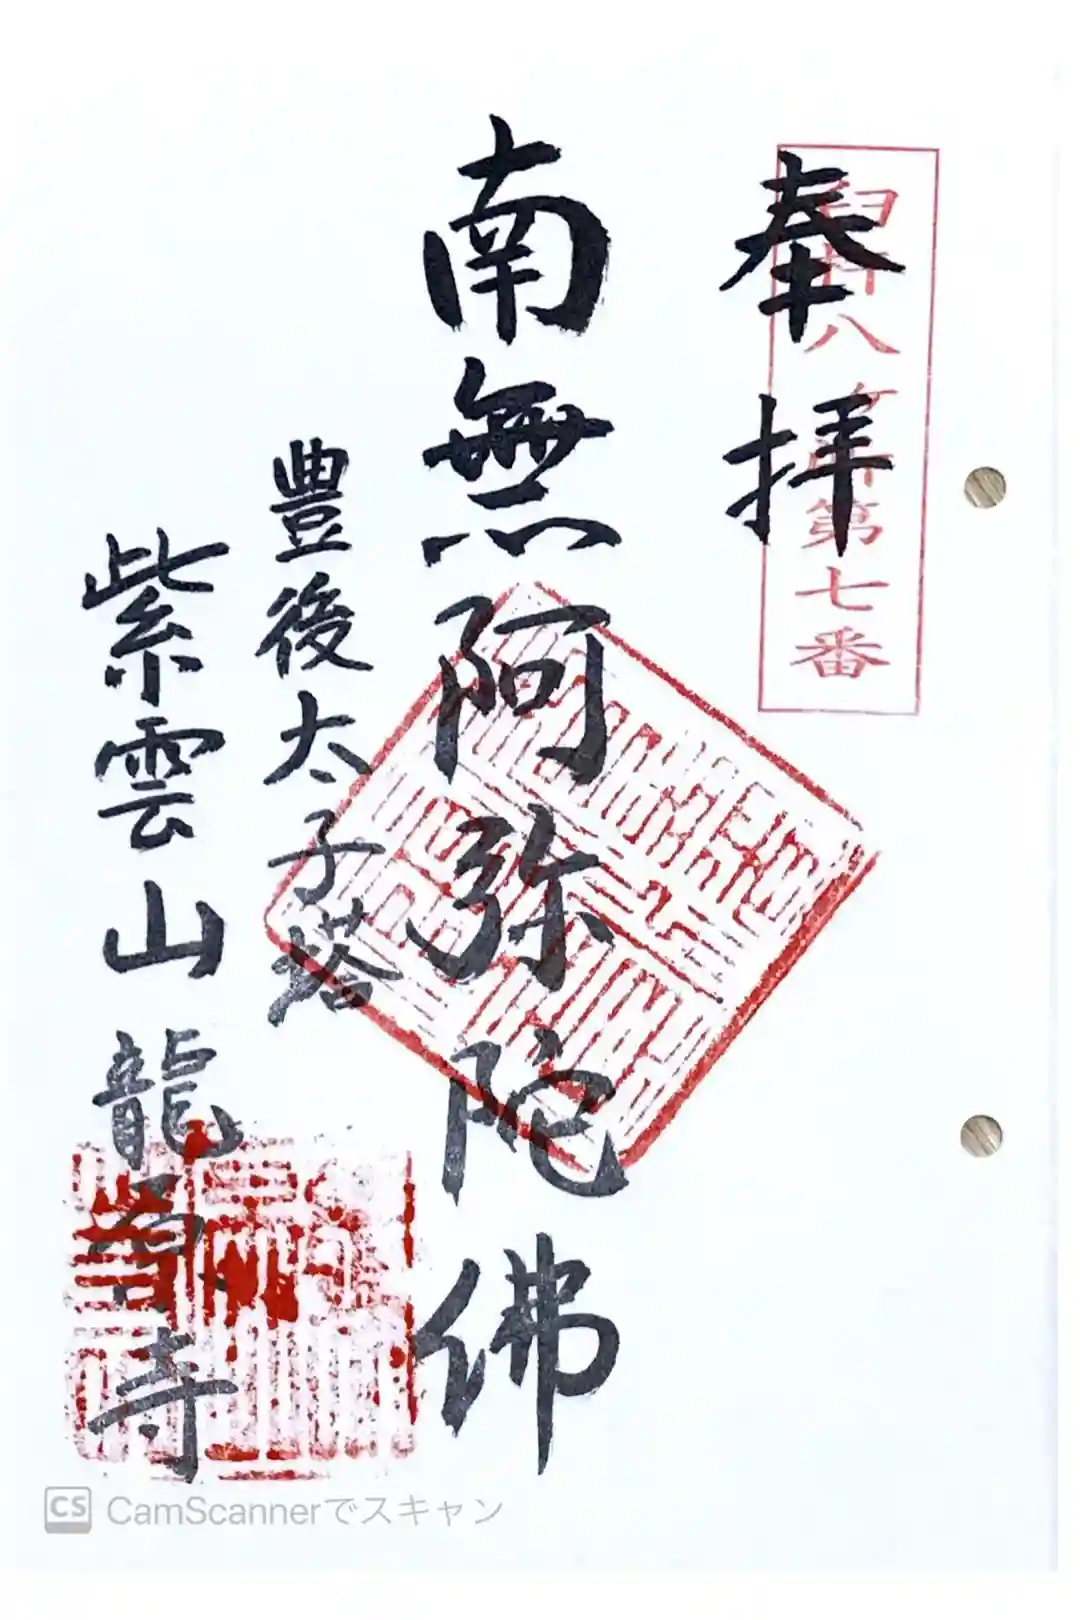 臼杵八ヶ所第七番
奉拝
南無阿弥陀佛
豊後太子塔
紫雲山龍原寺
CS CamScannerでスキャン